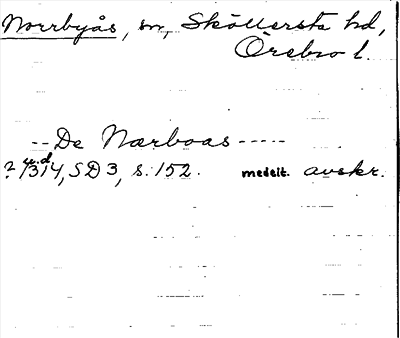 Norrbyås, sn, Sköllersta hd,
Örebro l.
-- De Nærboas -----
? 1314, SD 3, s. 152. medelt. avskr.